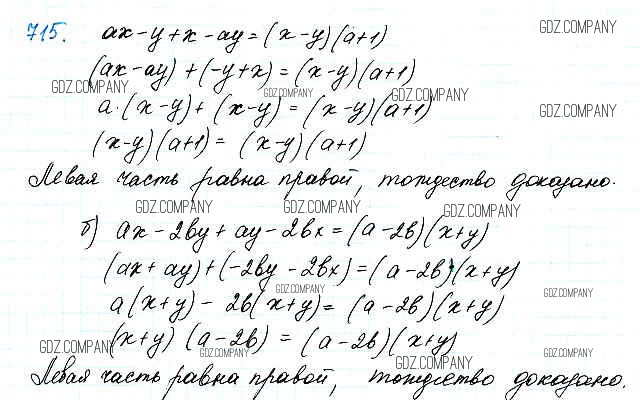 715. ax - y + x - ay = (x - y)(a + 1)
(ax - ay) + (-y + x) = (x - y)(a + 1)
a · (x - y) + (x - y) = (x - y)(a + 1)
(x - y)(a + 1) = (x - y)(a + 1)
Левая часть равна правой, тождество доказано.
б) ax - 2by + ay - 2bx = (a - 2b)(x + y)
(ax + ay) + (-2by - 2bx) = (a - 2b)(x + y)
a(x + y) - 2b(x + y) = (a - 2b)(x + y)
(x + y)(a - 2b) = (a - 2b)(x + y)
Левая часть равна правой, тождество доказано.
GDZ.COMPANY
GDZ.COMPANY
GDZ.COMPANY
GDZ.COMPANY
GDZ.COMPANY
GDZ.COMPANY
GDZ.COMPANY
GDZ.COMPANY
GDZ.COMPANY
GDZ.COMPANY
GDZ.COMPANY
GDZ.COMPANY
GDZ.COMPANY
GDZ.COMPANY